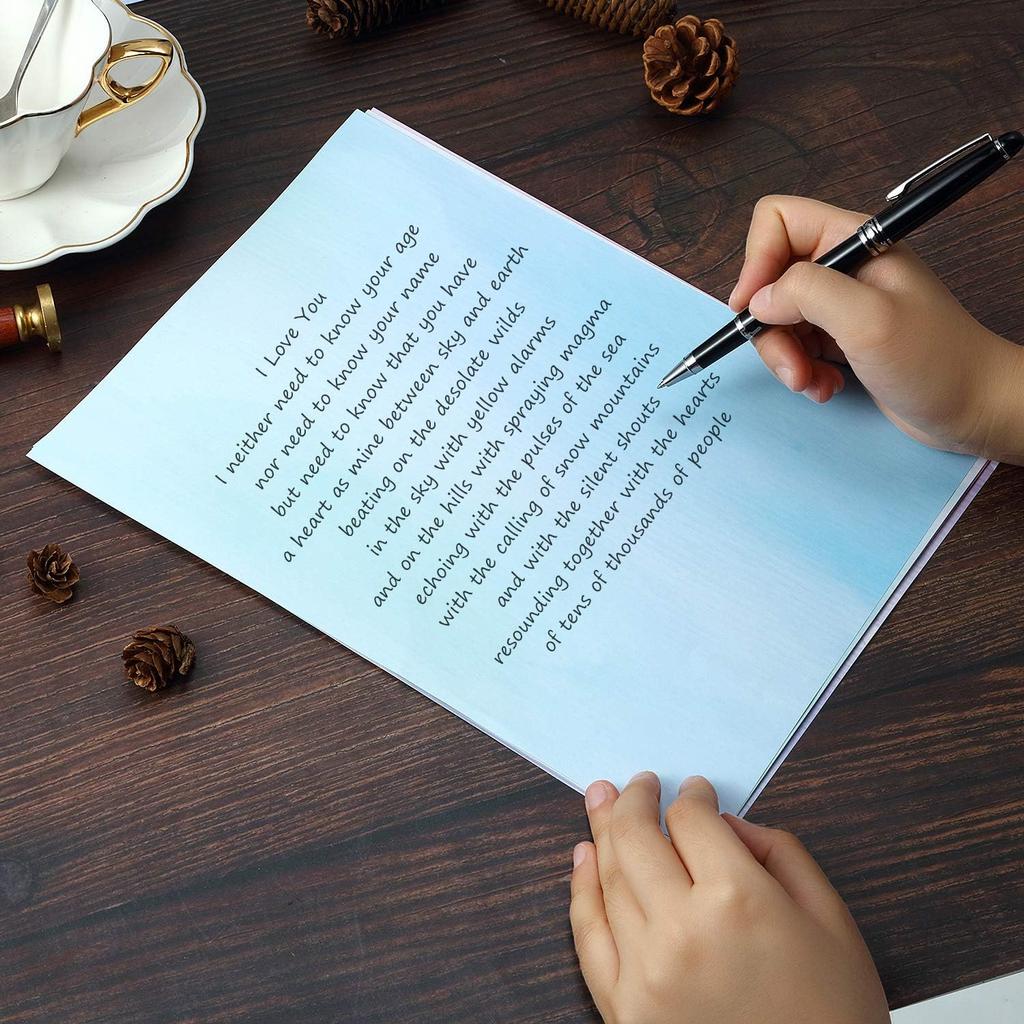 I Love You
I neither need to know your age
nor need to know your name
but need to know that you have
a heart as mine between sky and earth
beating on the desolate wilds
in the sky with yellow alarms
and on the hills with spraying magma
echoing with the pulses of the sea
with the calling of snow mountains
and with the silent shouts
resounding together with the hearts
of tens of thousands of people